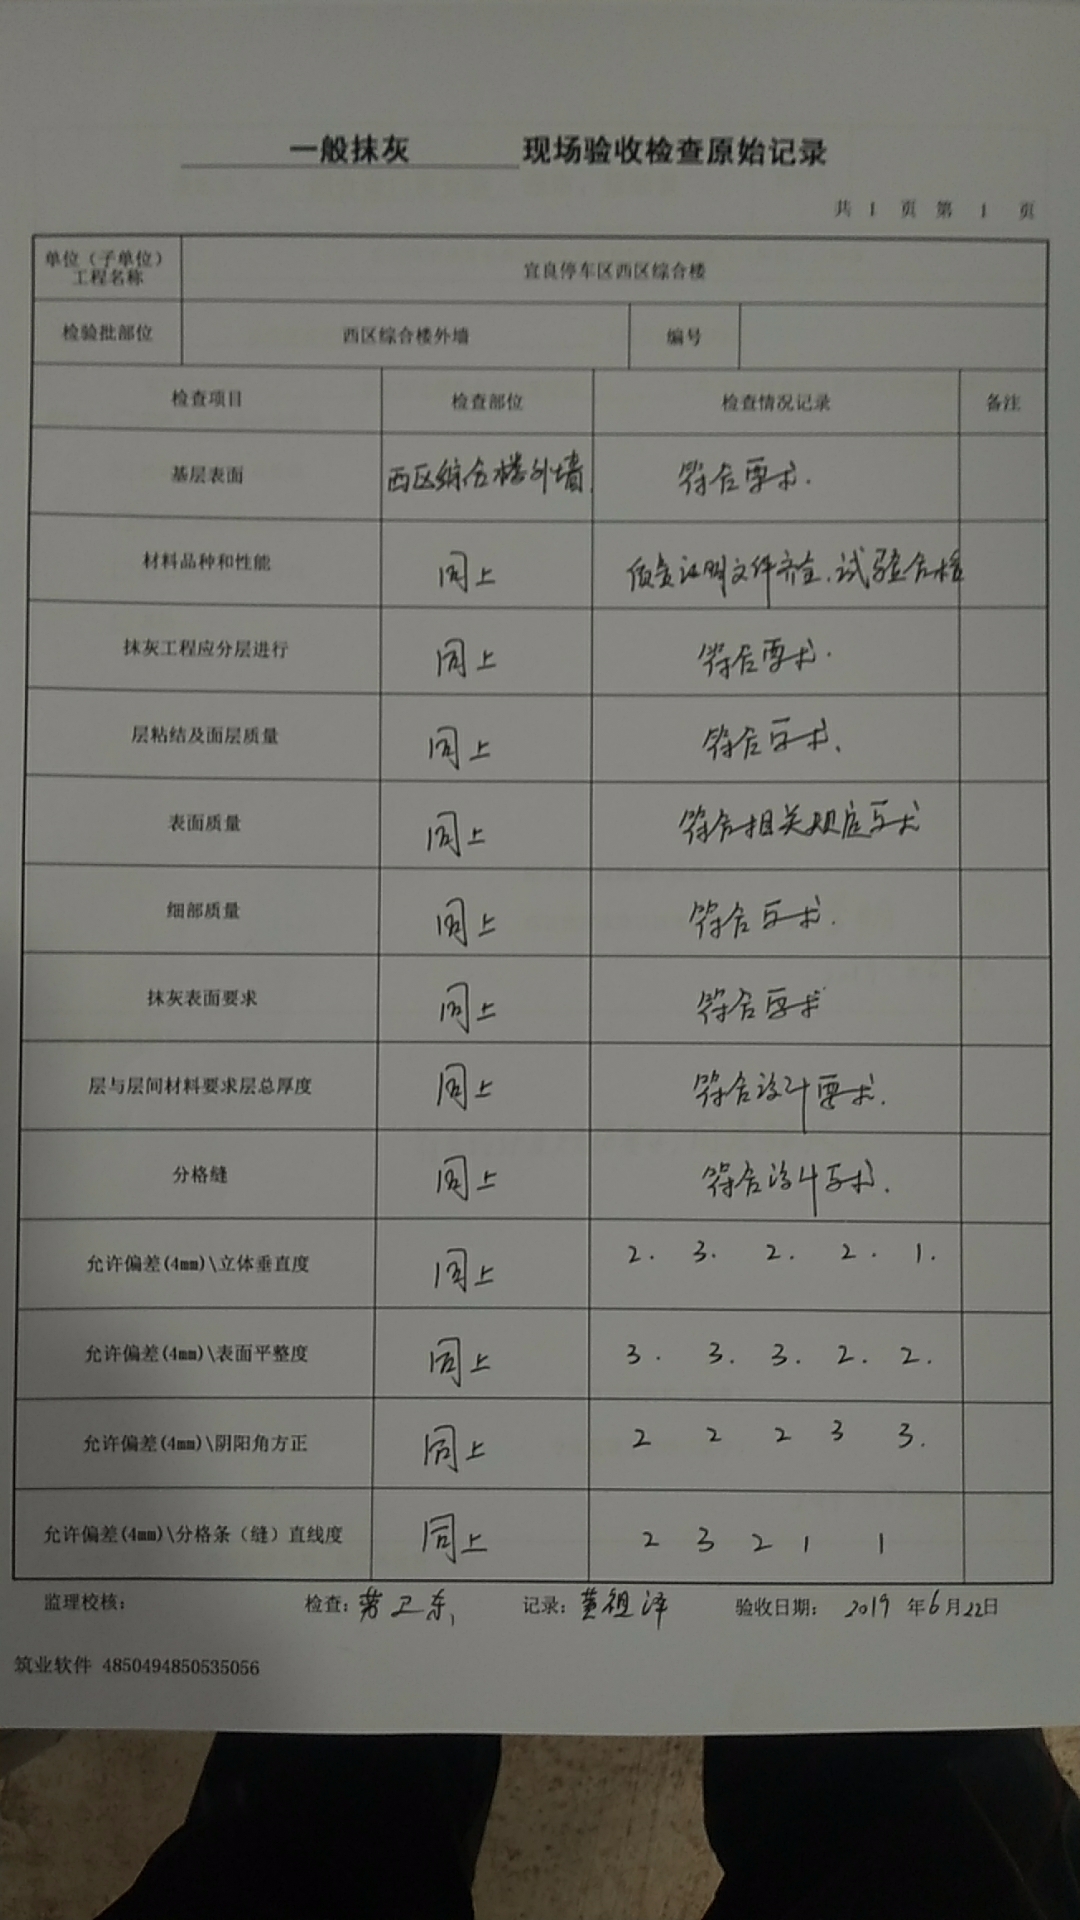 一般抹灰 现场验收检查原始记录
共 1 页 第 1 页
单位（子单位）
工程名称
宜良停车区西区综合楼
检验批部位 西区综合楼外墙 编号
检查项目 检查部位 检查情况记录 备注
基层表面 西区综合楼外墙. 符合要求.
材料品种和性能 同上 质量证明文件齐全.试验合格
抹灰工程应分层进行 同上 符合要求.
层粘结及面层质量 同上 符合要求.
表面质量 同上 符合相关规定要求
细部质量 同上 符合要求.
抹灰表面要求 同上 符合要求
层与层间材料要求层总厚度 同上 符合设计要求.
分格缝 同上 符合设计要求.
允许偏差(4mm)\立体垂直度 同上 2. 3. 2. 2. 1.
允许偏差(4mm)\表面平整度 同上 3. 3. 3. 2. 2.
允许偏差(4mm)\阴阳角方正 同上 2 2 2 3 3.
允许偏差(4mm)\分格条（缝）直线度 同上 2 3 2 1 1
监理校核： 检查： 卫东 记录：董祖泽 验收日期： 2019 年6月22日
筑业软件 4850494850535056